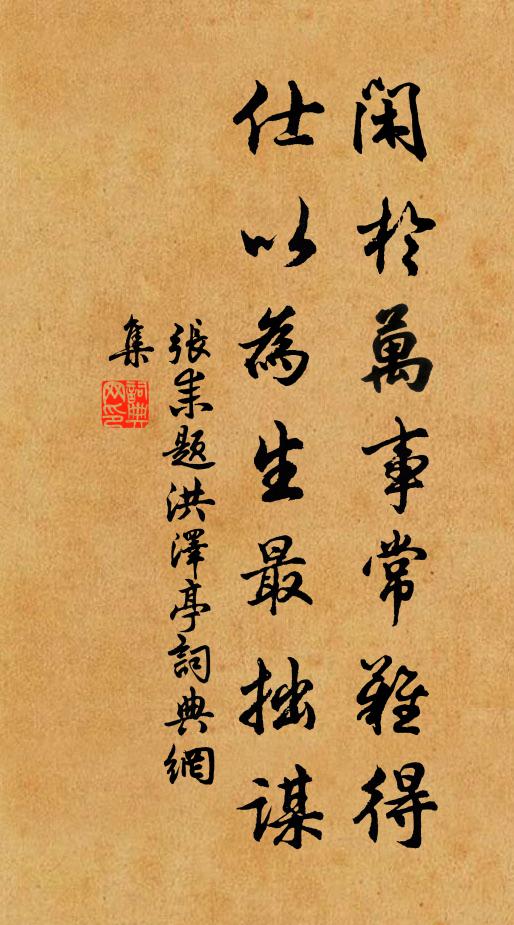 閑於萬事常難得
仕以為生最拙謀
張耒題洪澤亭詞典網
集
詞典
網印